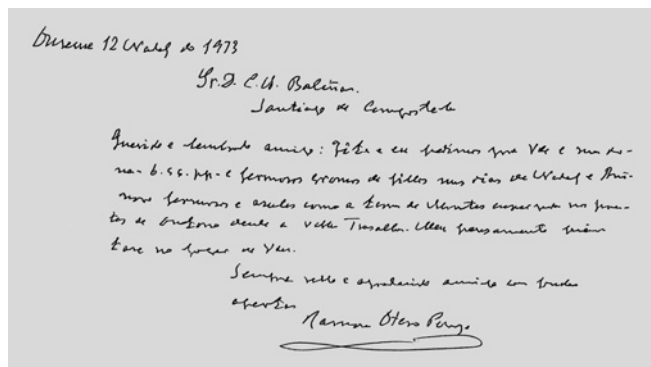 Ourense 12 Nadal de 1973
Sr. D. C. A. Baliñas.
Santiago de Compostela
Querido e lembrado amigo: Fita e eu pedimos que Vde e sua do-
na - b. ss. pp. - e fermosos de fillos nus dias de Nadal e Ani-
novo fermosos e como a terra de Montes
tas de outono dende a vella Trasalba. Meu pensamento
no fogar de Vdes.
Sempre vello e agradecido amigo con fondas
apertas
Ramon Otero Pedrayo